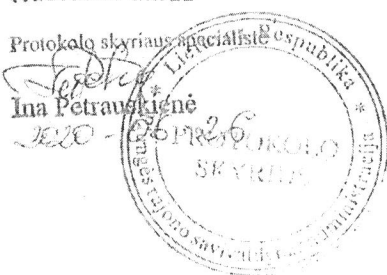 Protokolo skyriaus specialistė
Ina Petrauskienė
2020-06-26
Lietuvos Respublika
rajono savivaldybės administracija
PROTOKOLO
SKYRIUS